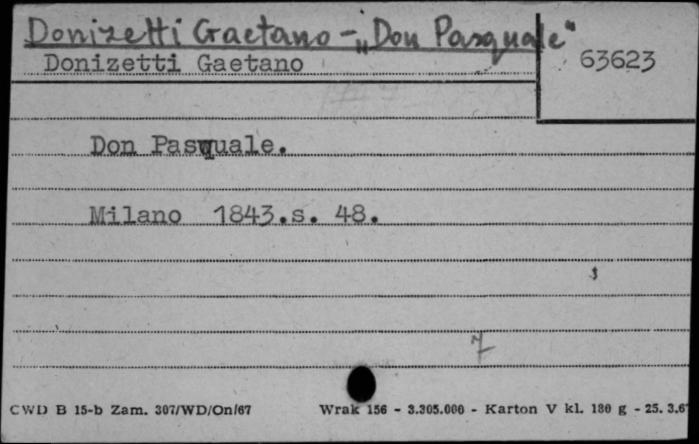 Donizetti Gaetano - „Don Pasquale"
Donizetti Gaetano
63623
Don Pasquale.
Milano 1843.s. 48.
7
CWD B 15-b Zam. 307/WD/On/67 Wrak 156 - 3.305.000 - Karton V kl. 180 g - 25. 3.6